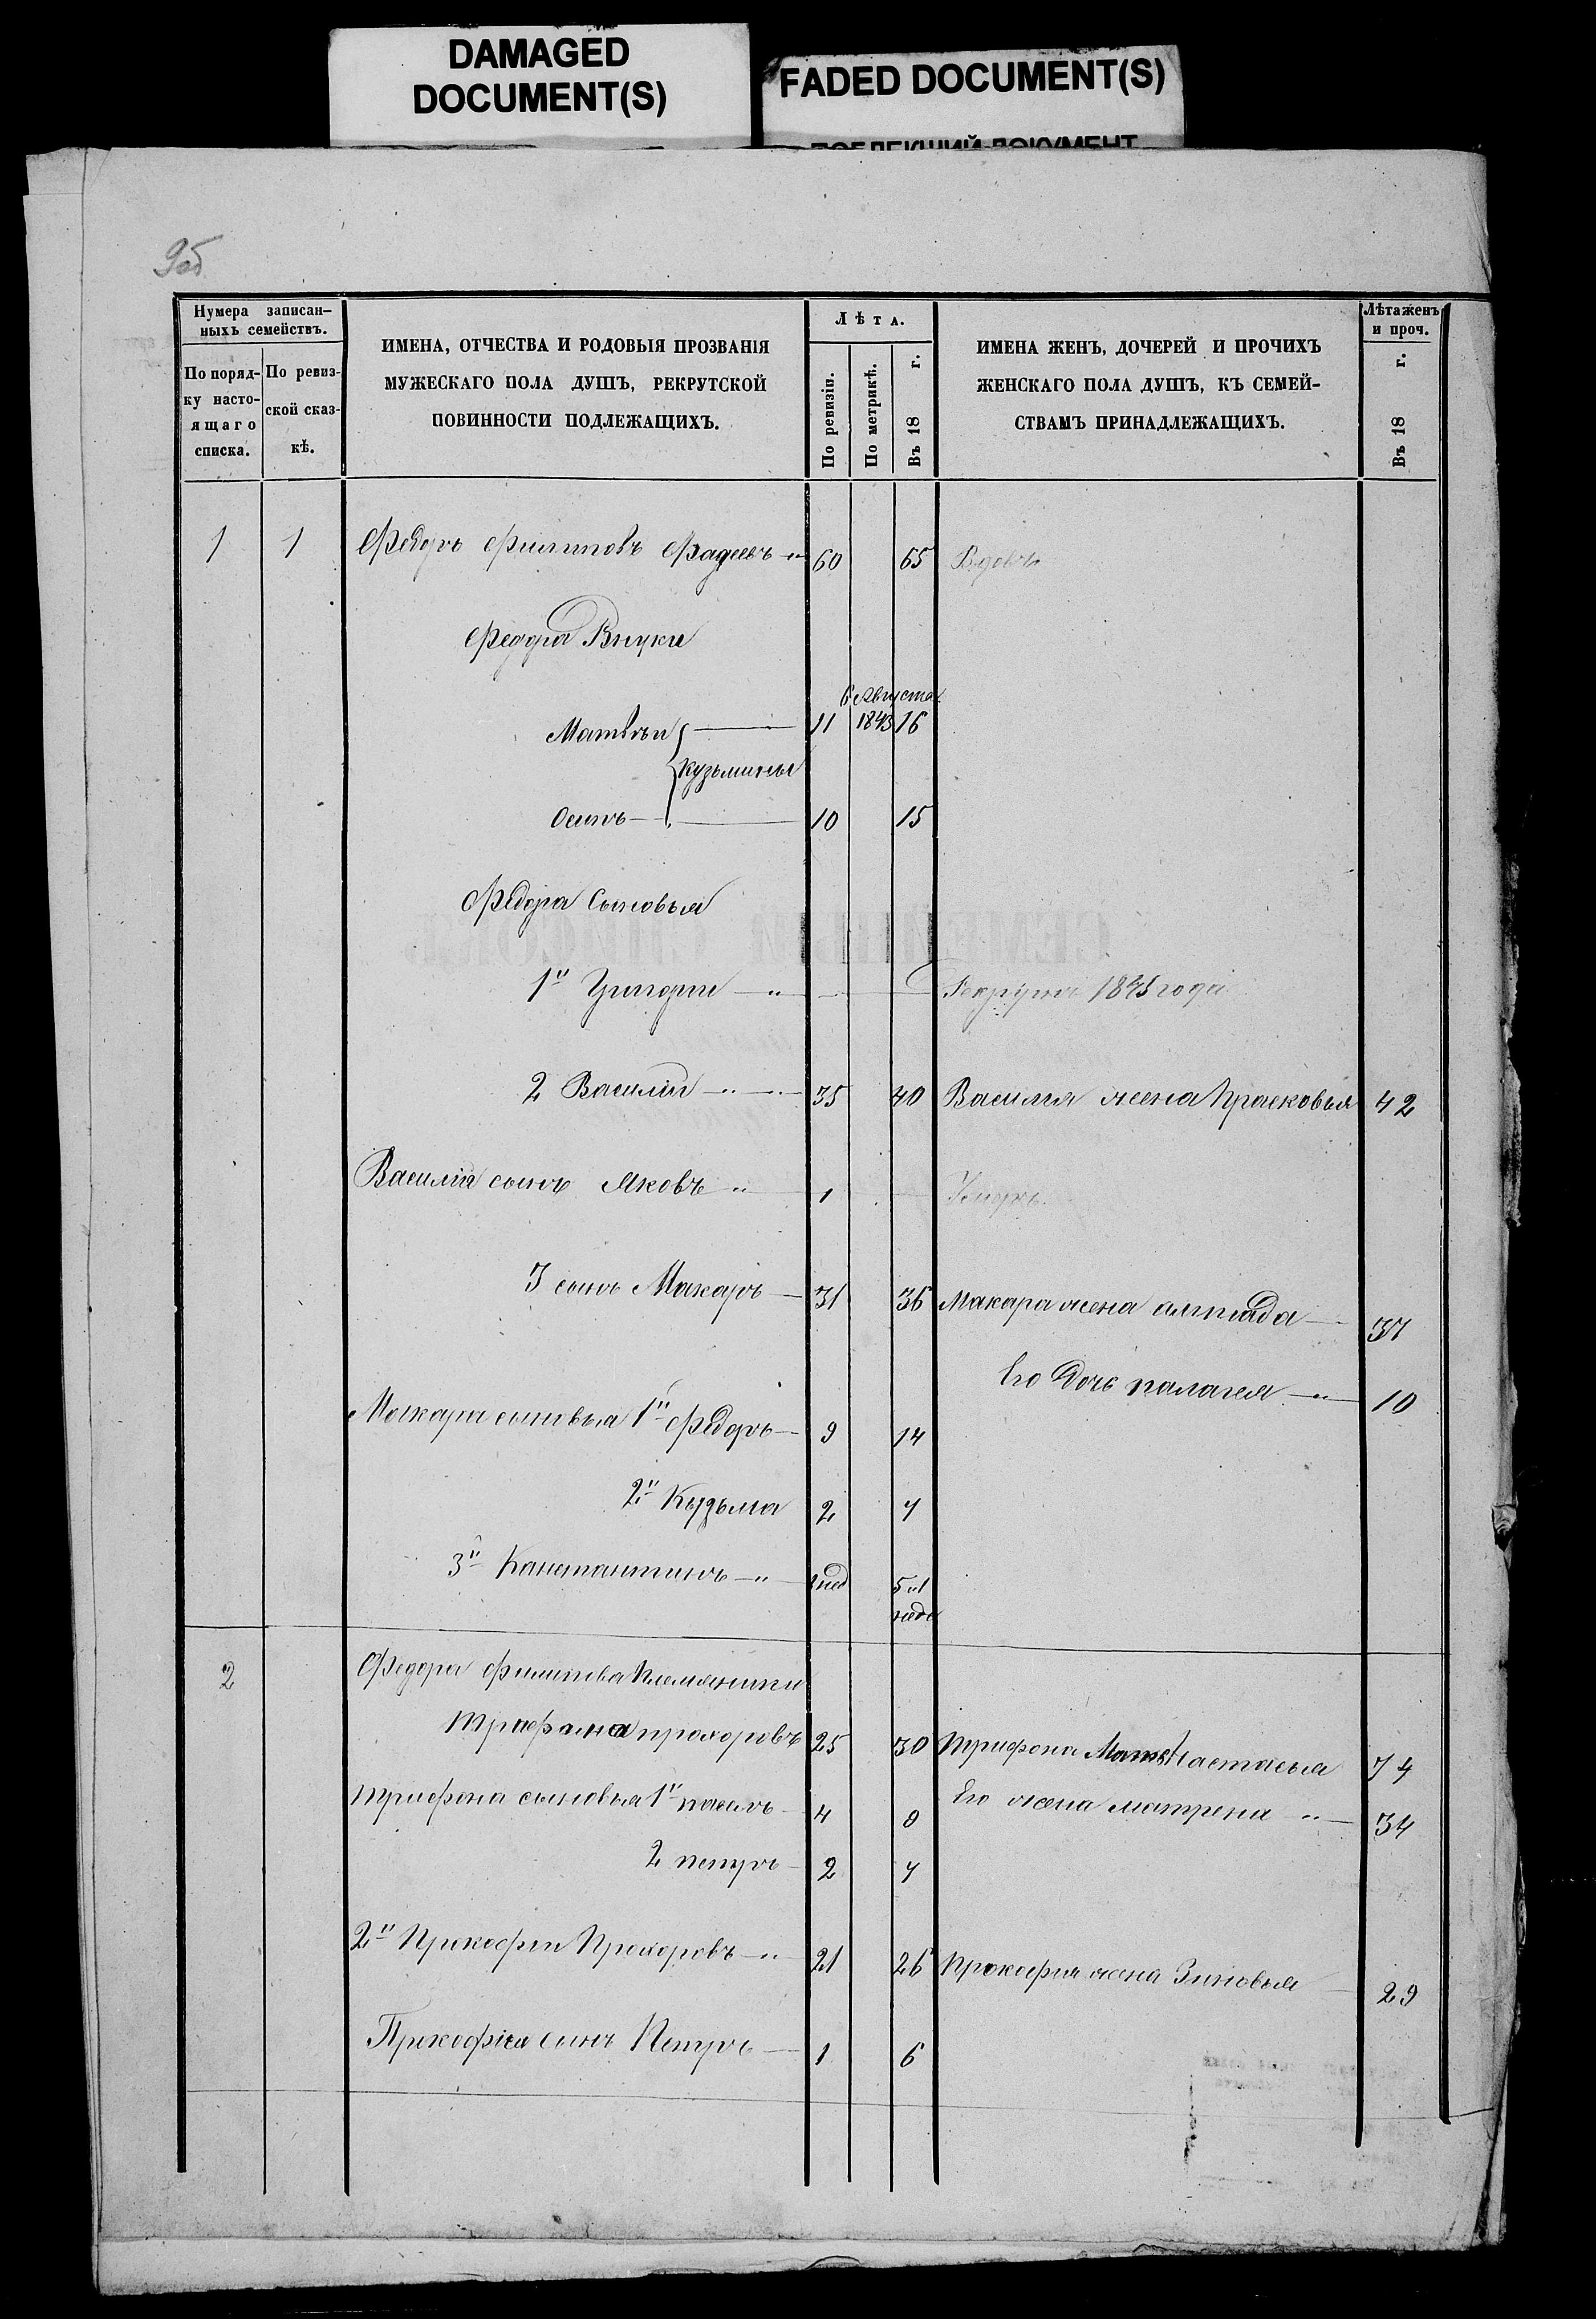 DAMAGED
DOCUMENT(S)
FADED DOCUMENT(S)
Нумера записан-
ныхъ семействъ.
По поряд-
ку насто-
ящаго
списка.
По ревиз-
ской сказ-
кѣ.
ИМЕНА, ОТЧЕСТВА И РОДОВЫЯ ПРОЗВАНІЯ
МУЖЕСКАГО ПОЛА ДУШЪ, РЕКРУТСКОЙ
ПОВИННОСТИ ПОДЛЕЖАЩИХЪ.
Лѣта.
По ревизіи.
По метрикѣ.
Въ 18 г.
ИМЕНА ЖЕНЪ, ДОЧЕРЕЙ И ПРОЧИХЪ
ЖЕНСКАГО ПОЛА ДУШЪ, КЪ СЕМЕЙ-
СТВАМЪ ПРИНАДЛЕЖАЩИХЪ.
Лѣта женъ
и проч.
Въ 18 г.
1 1 Федоръ Филиповъ Фадеевъ 60 65 Вдовъ
Федора Внуки
6 Августа
Матвѣи 11 1843 16
Кузьмины
Осипъ 10 15
Федора Сыновья
1й Григори Рекрутъ 1845 года
2 Василіи 35 40 Василия жена Прасковья 42
Василія сынъ Яковъ 1
3 сынъ Макаръ 31 36 Макара жена 37
Его Дочь палагея 10
Макара сыновья 1й Федоръ 9 14
2й Кузьма 2 7
3й Канстантинъ 1 нед 5 и 1
неде
2 Федора Филипова Племяники
прохоровъ 25 30 Трифона Мать Настасья 74
Трифона сыновья 1й 4 9 Его жена матрена 34
2 петръ 2 7
2й Прокофеи Прохоровъ 21 26 Прокофия жена Зиновья 29
Прокофія сынъ Петръ 1 6